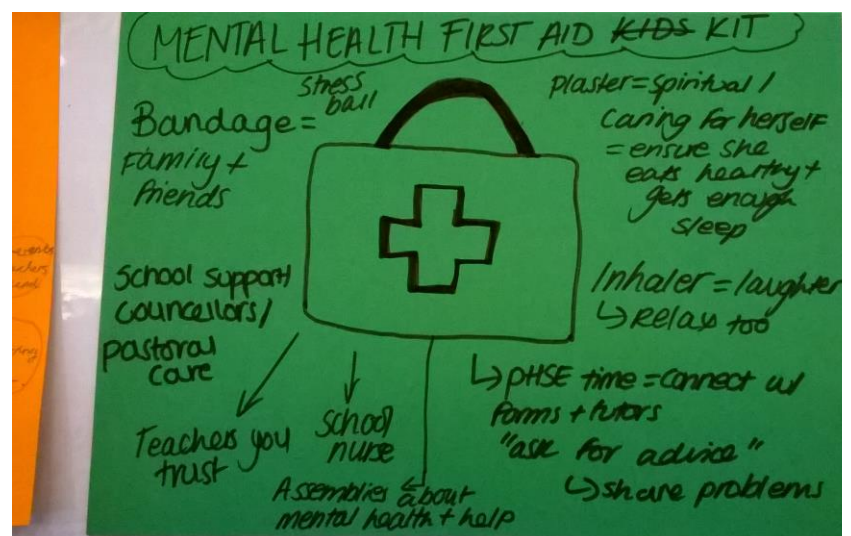 MENTAL HEALTH FIRST AID KIDS KIT
stress
ball
Bandage =
Family +
friends
Plaster = spiritual /
caring for herself
= ensure she
eats healthy +
gets enough
sleep
Inhaler = laughter
↳ relax too
School support/
councellors/
pastoral
care
Teachers you
trust
School
nurse
Assemblies about
mental health + help
↳ PHSE time = connect w/
forms + tutors
"ask for advice"
↳ share problems